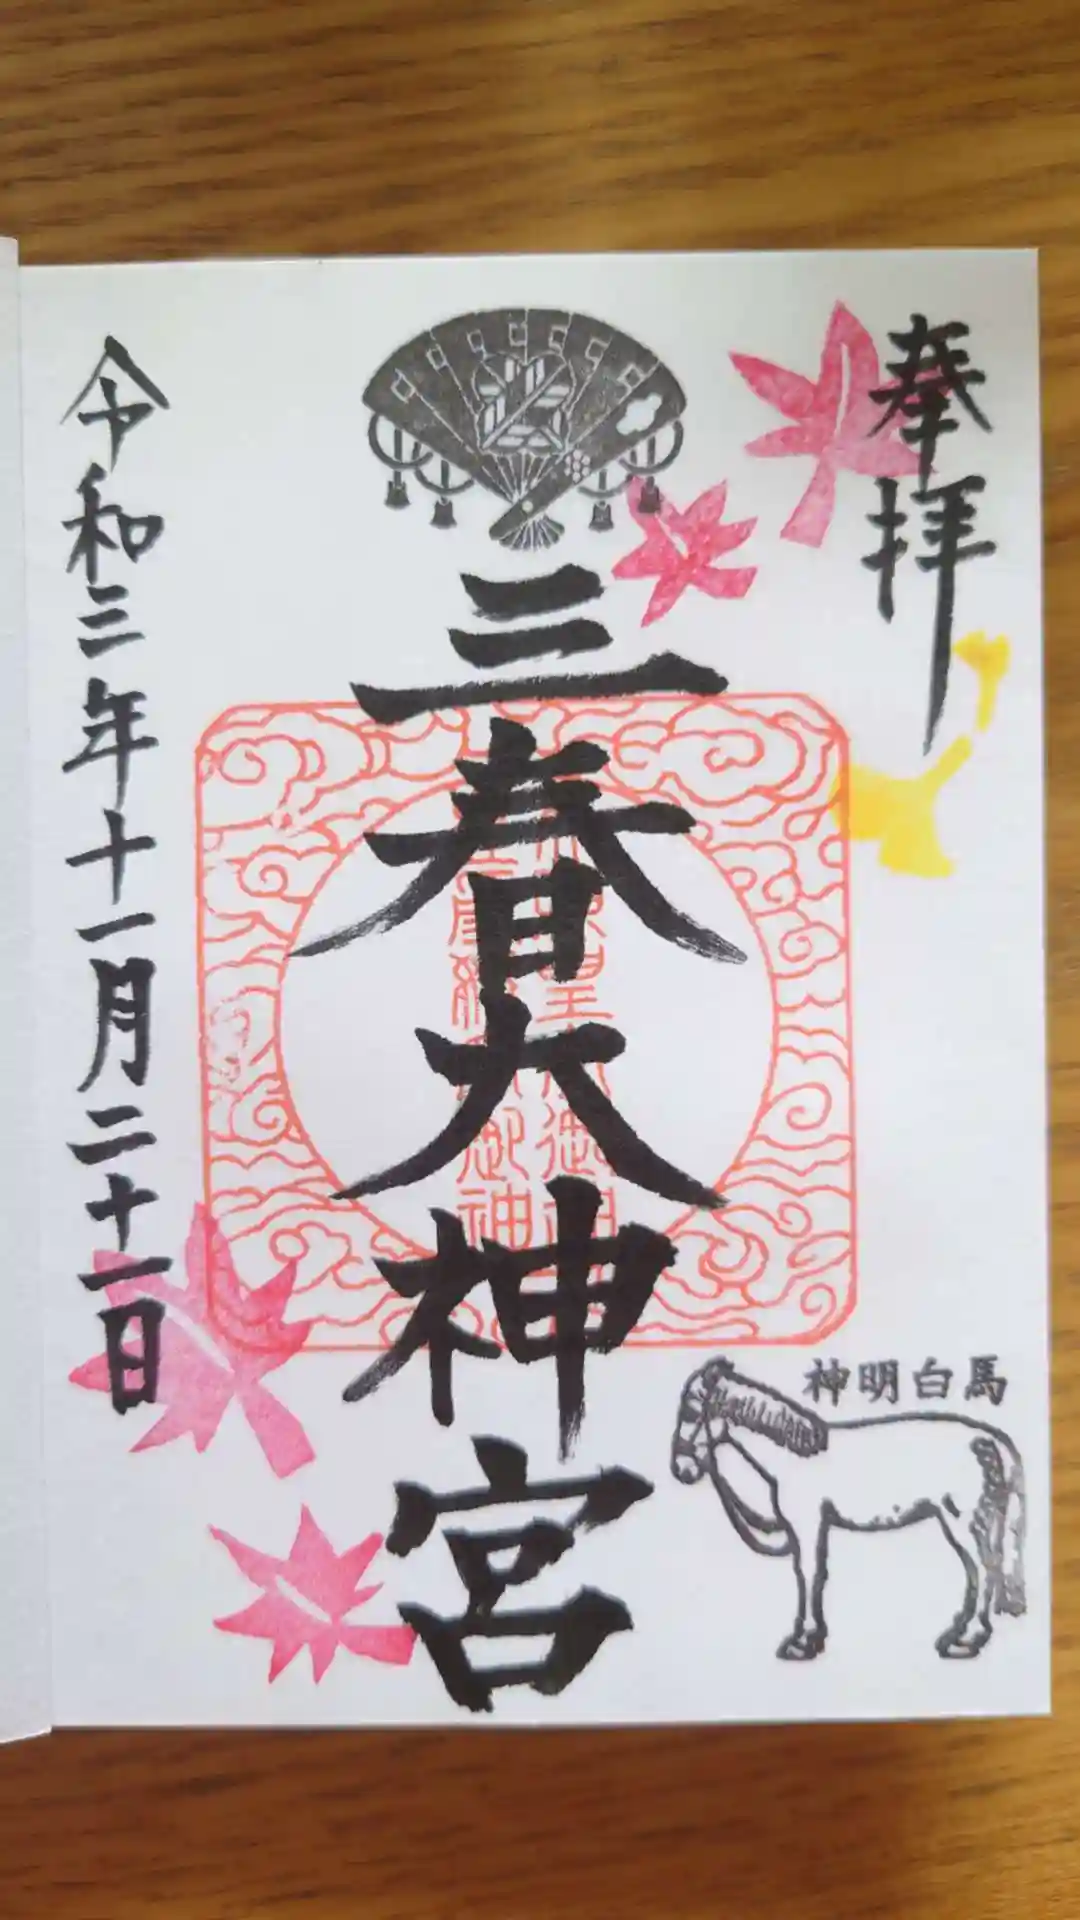 奉拝
三春大神宮
神明白馬
令和三年十一月二十一日